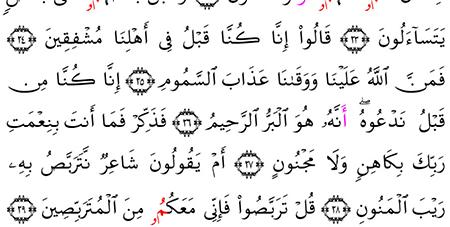 يَتَسَآءَلُونَ ﴿٢٣﴾ قَالُوٓاْ إِنَّا كُنَّا قَبْلُ فِىٓ أَهْلِنَا مُشْفِقِينَ ﴿٢٤﴾
فَمَنَّ ٱللَّهُ عَلَيْنَا وَوَقَىٰنَا عَذَابَ ٱلسَّمُومِ ﴿٢٥﴾ إِنَّا كُنَّا مِن
قَبْلُ نَدْعُوهُۖ أَنَّهُۥ هُوَ ٱلْبَرُّ ٱلرَّحِيمُ ﴿٢٦﴾ فَذَكِّرْ فَمَآ أَنتَ بِنِعْمَتِ
رَبِّكَ بِكَاهِنٍ وَلَا مَجْنُونٍ ﴿٢٧﴾ أَمْ يَقُولُونَ شَاعِرٌ نَّتَرَبَّصُ بِهِۦ
رَيْبَ ٱلْمَنُونِ ﴿٢٨﴾ قُلْ تَرَبَّصُواْ فَإِنِّى مَعَكُمُۥ مِنَ ٱلْمُتَرَبِّصِينَ ﴿٢٩﴾